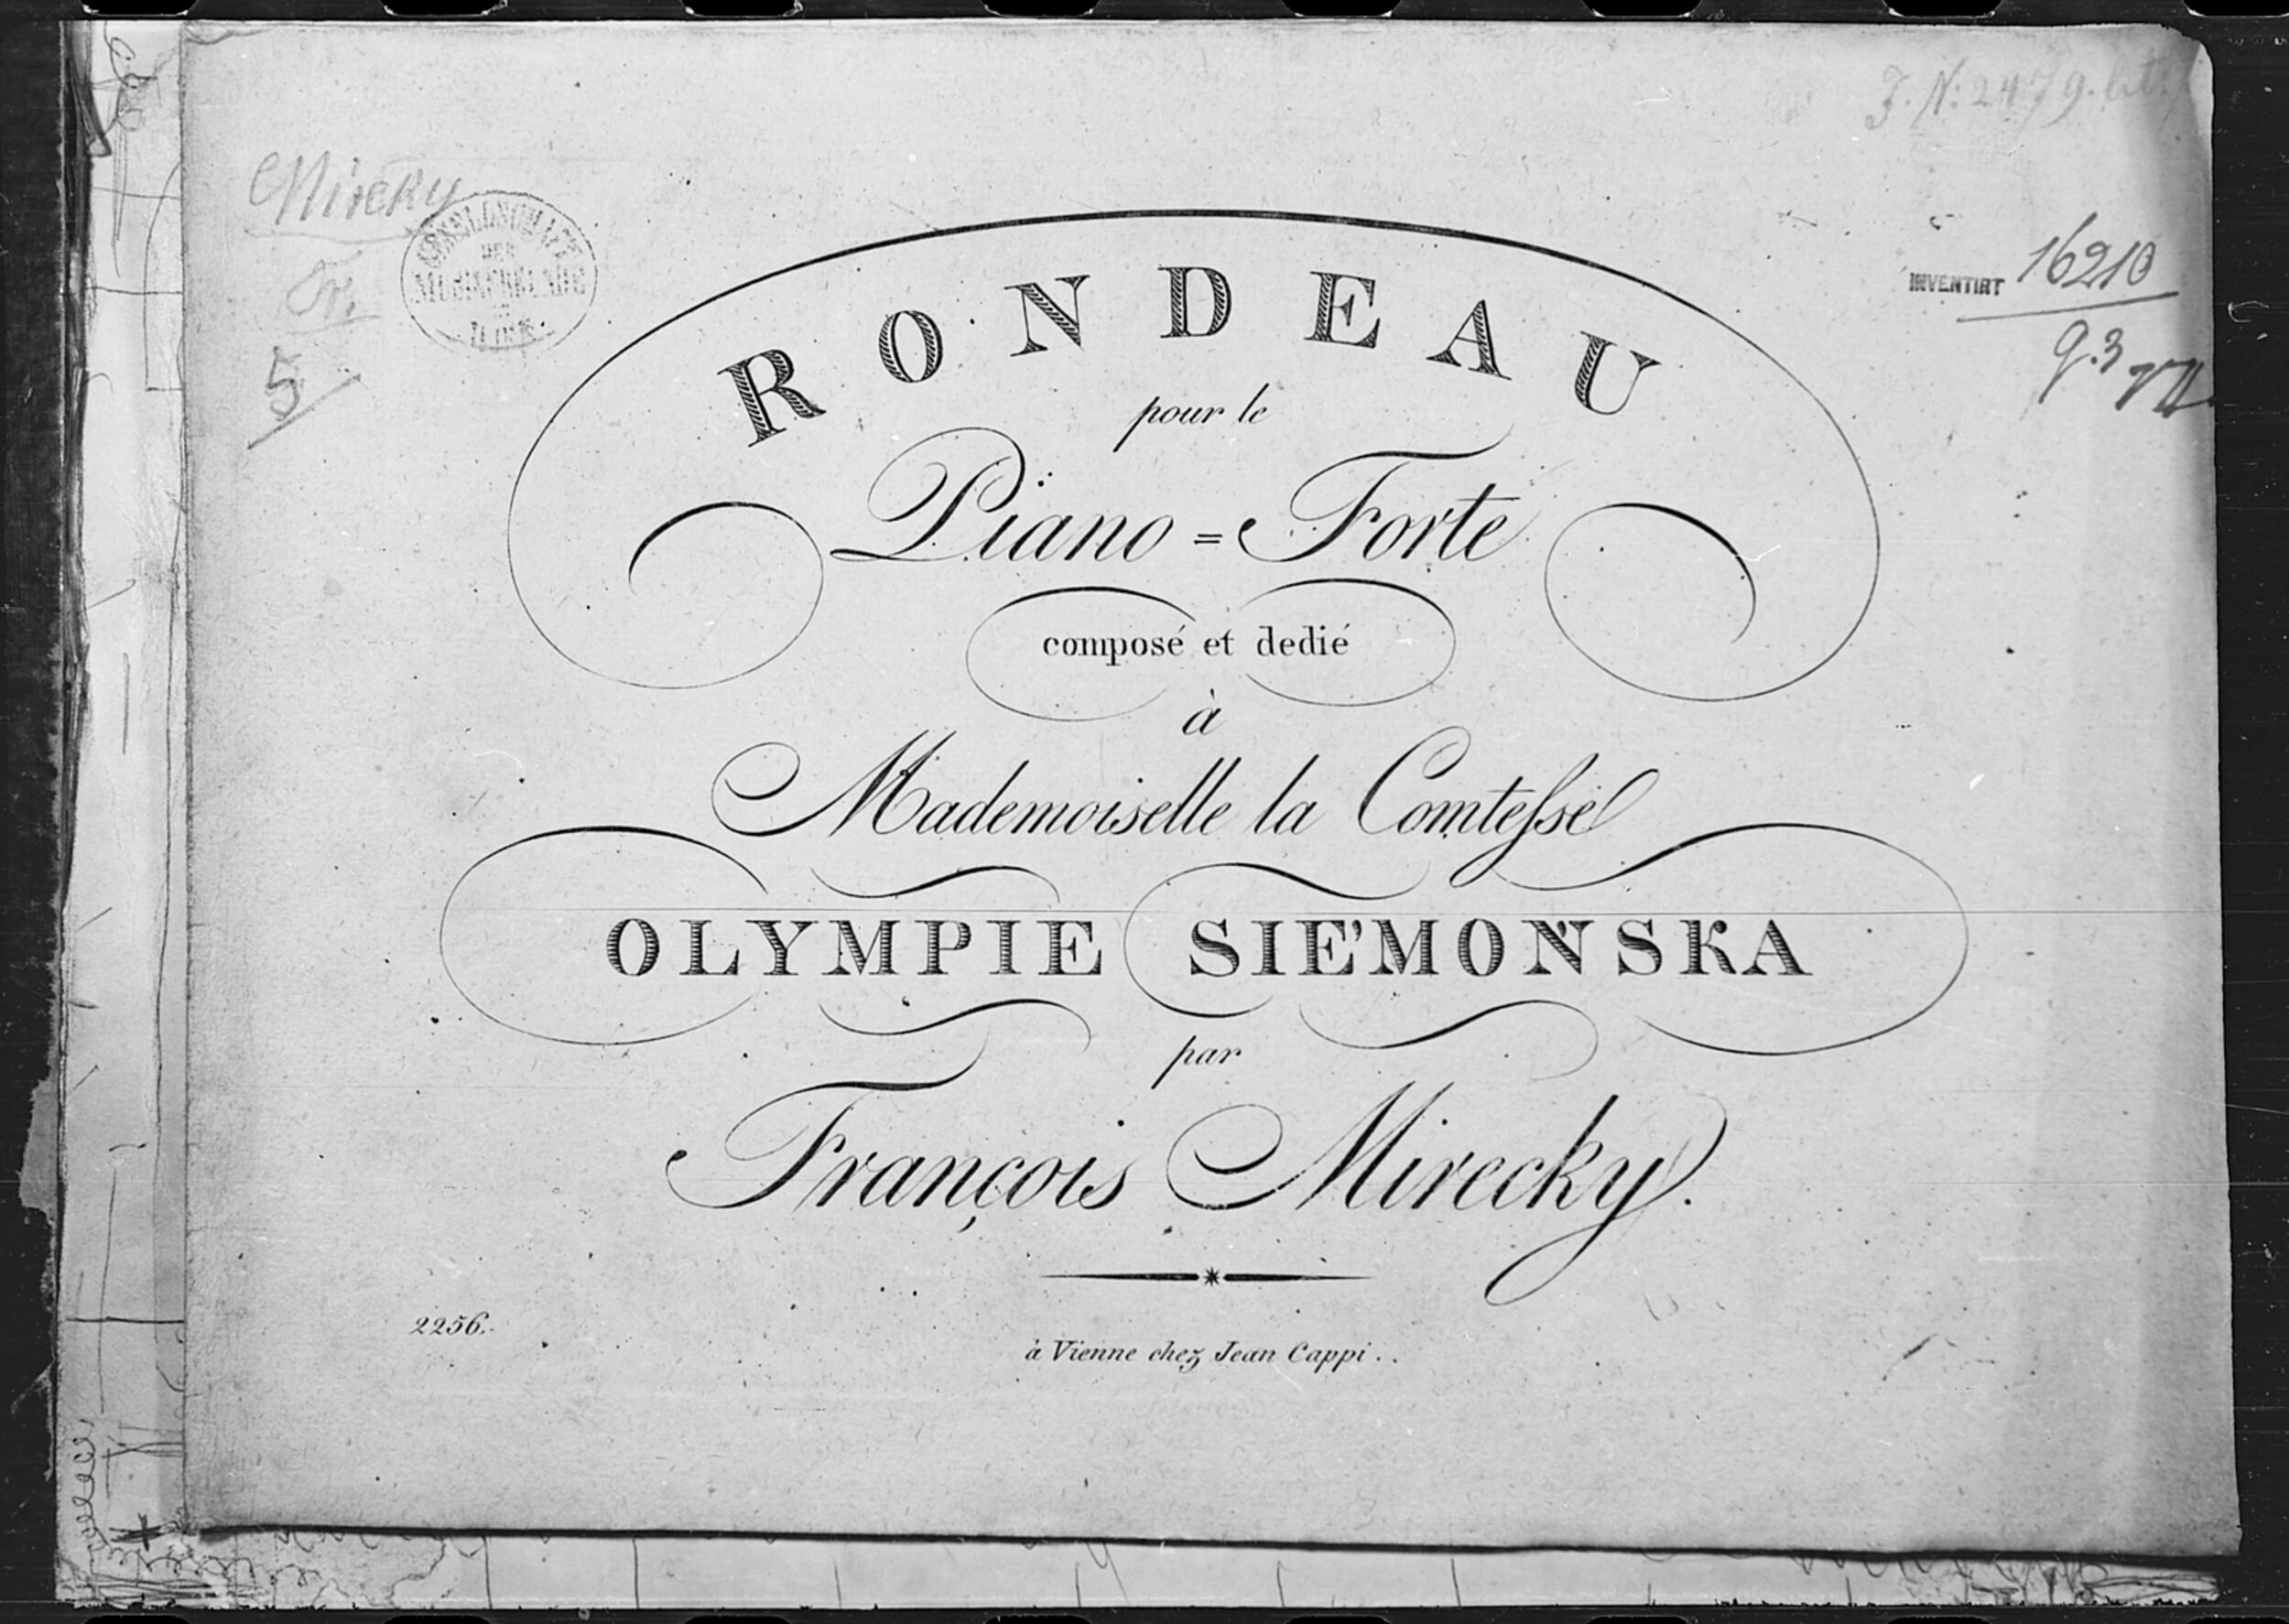 Mirecky
Fr.
5
GESELLSCHAFT
DER
MUSIKFREUNDE
IN
WIEN
INVENTIRT 16210
RONDEAU
pour le
Piano=Forte
composé et dedié
à
Mademoiselle la Comtesse
OLYMPIE SIE'MOŃSKA
par
François Mirecky.
2256.
à Vienne chez Jean Cappi..